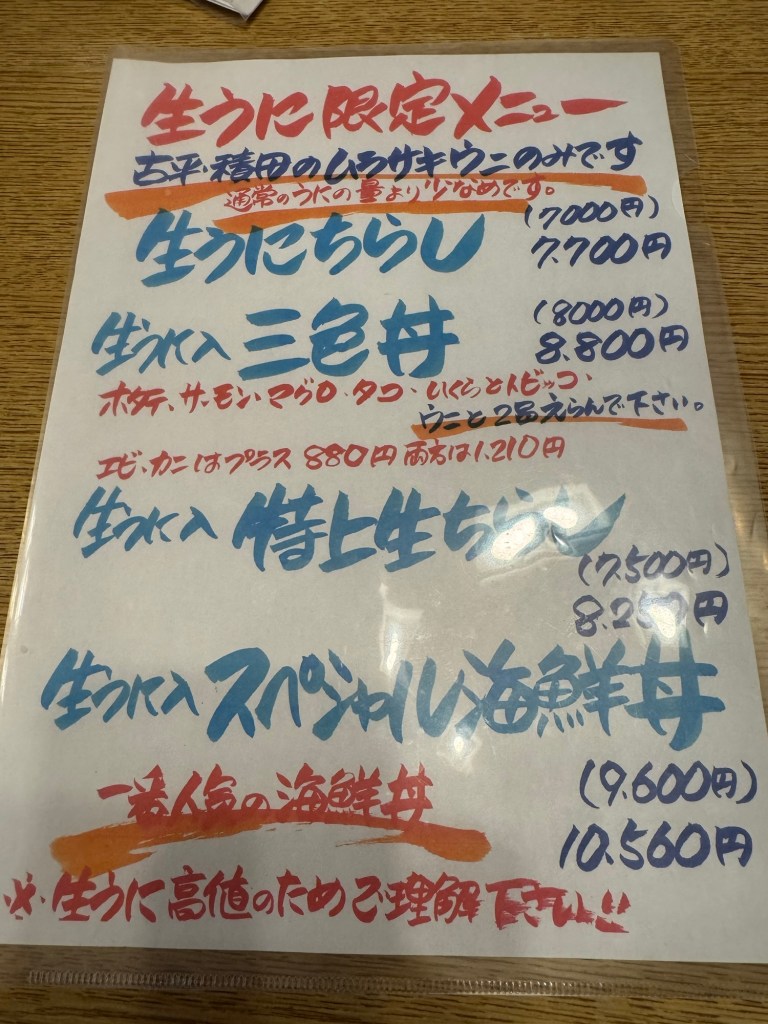 生うに限定メニュー
古平・積丹のムラサキウニのみです
通常のうにの量より少なめです。
(7000円)
生うにちらし 7.700円
(8000円)
生うに入 三色丼 8.800円
ホタテ、サーモン・マグロ・タコ・いくらとトビッコ・
ウニと2品えらんで下さい。
エビ・カニはプラス 880円 両方は1.210円
生うに入 特上生ちらし
(7.500円)
円
生うに入 スペシャル海鮮丼
一番人気の海鮮丼 (9.600円)
10.560円
※生うに高値のためご理解下さい!!